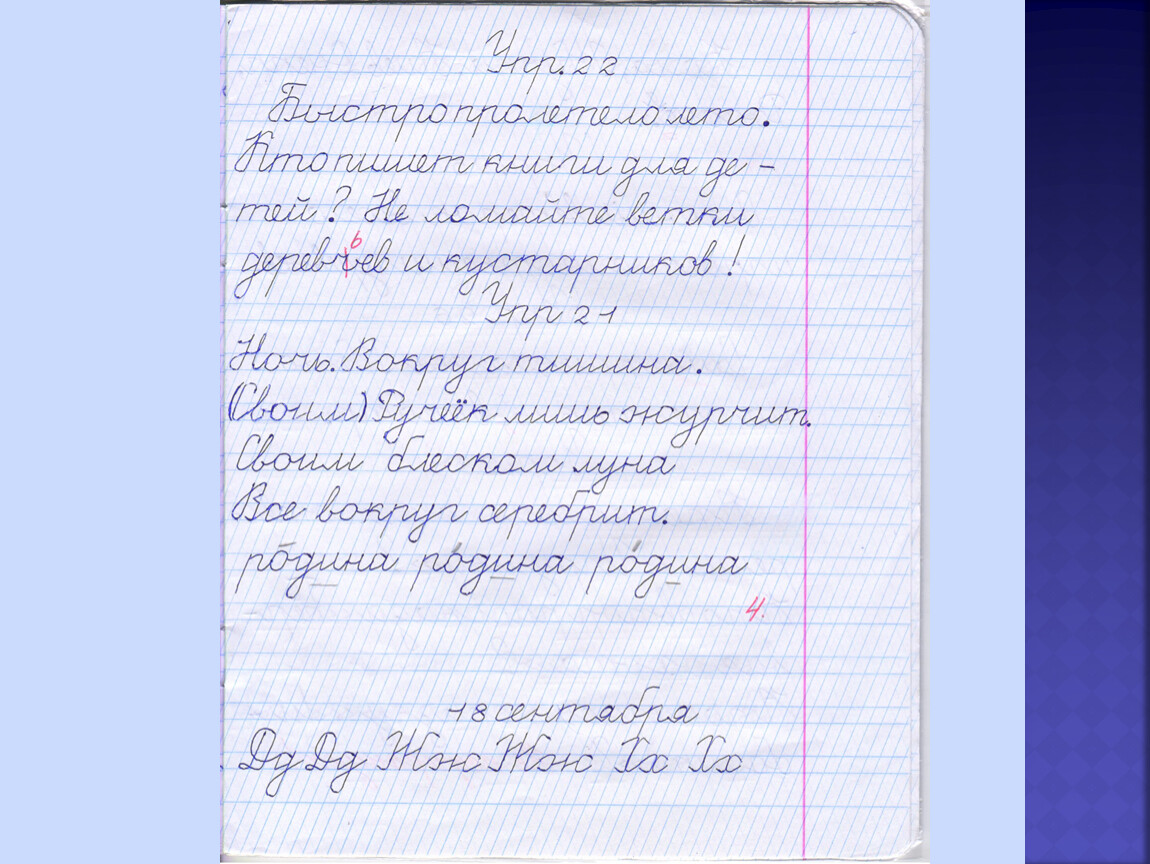 Упр. 22
Быстро пролетело лето.
Кто пишет книги для де-
тей? Не ломайте ветки
деревьев и кустарников!
Упр 21
Ночь. Вокруг тишина.
(Своим) Ручеёк лишь журчит.
Своим блеском луна
Все вокруг серебрит.
ро́дина ро́дина ро́дина
4.
18 сентября
Дд Дд Жж Жж Хх Хх